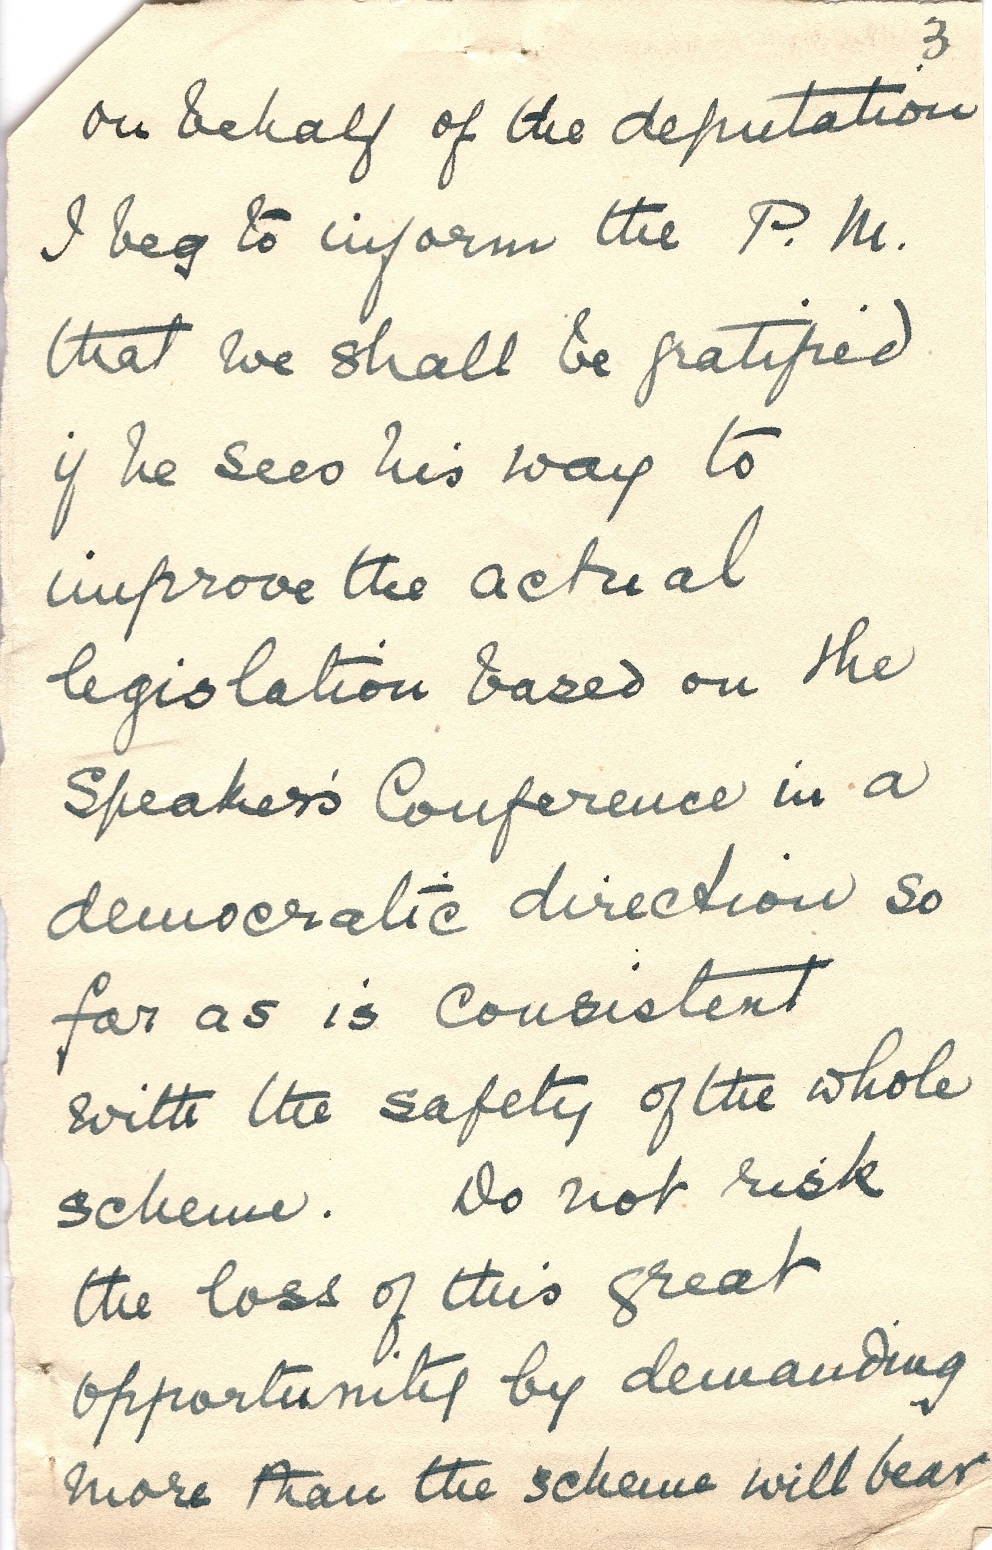 3
on behalf of the deputation
I beg to inform the P. M.
that we shall be gratified
if he sees his way to
improve the actual
legislation based on the
Speaker's Conference in a
democratic direction so
far as is consistent
with the safety of the whole
scheme. Do not risk
the loss of this great
opportunity by demanding
more than the scheme will bear